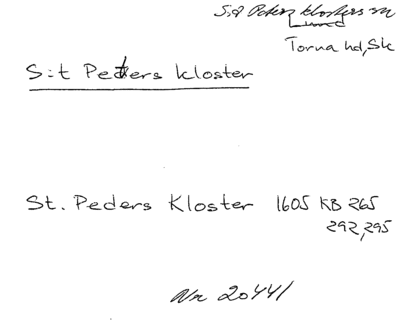 S:t Peters klosters sn
Lund
Torna hd, Sk
S:t Petters kloster
St. Peders Kloster 1605 KB 265
292, 295
Nr 20441